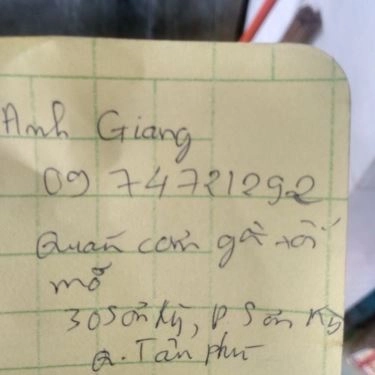 Anh Giang
09 74721292
Quán cơm gà xối
mỡ
30 Sơn Kỳ, P Sơn Kỳ
Q. Tân phú